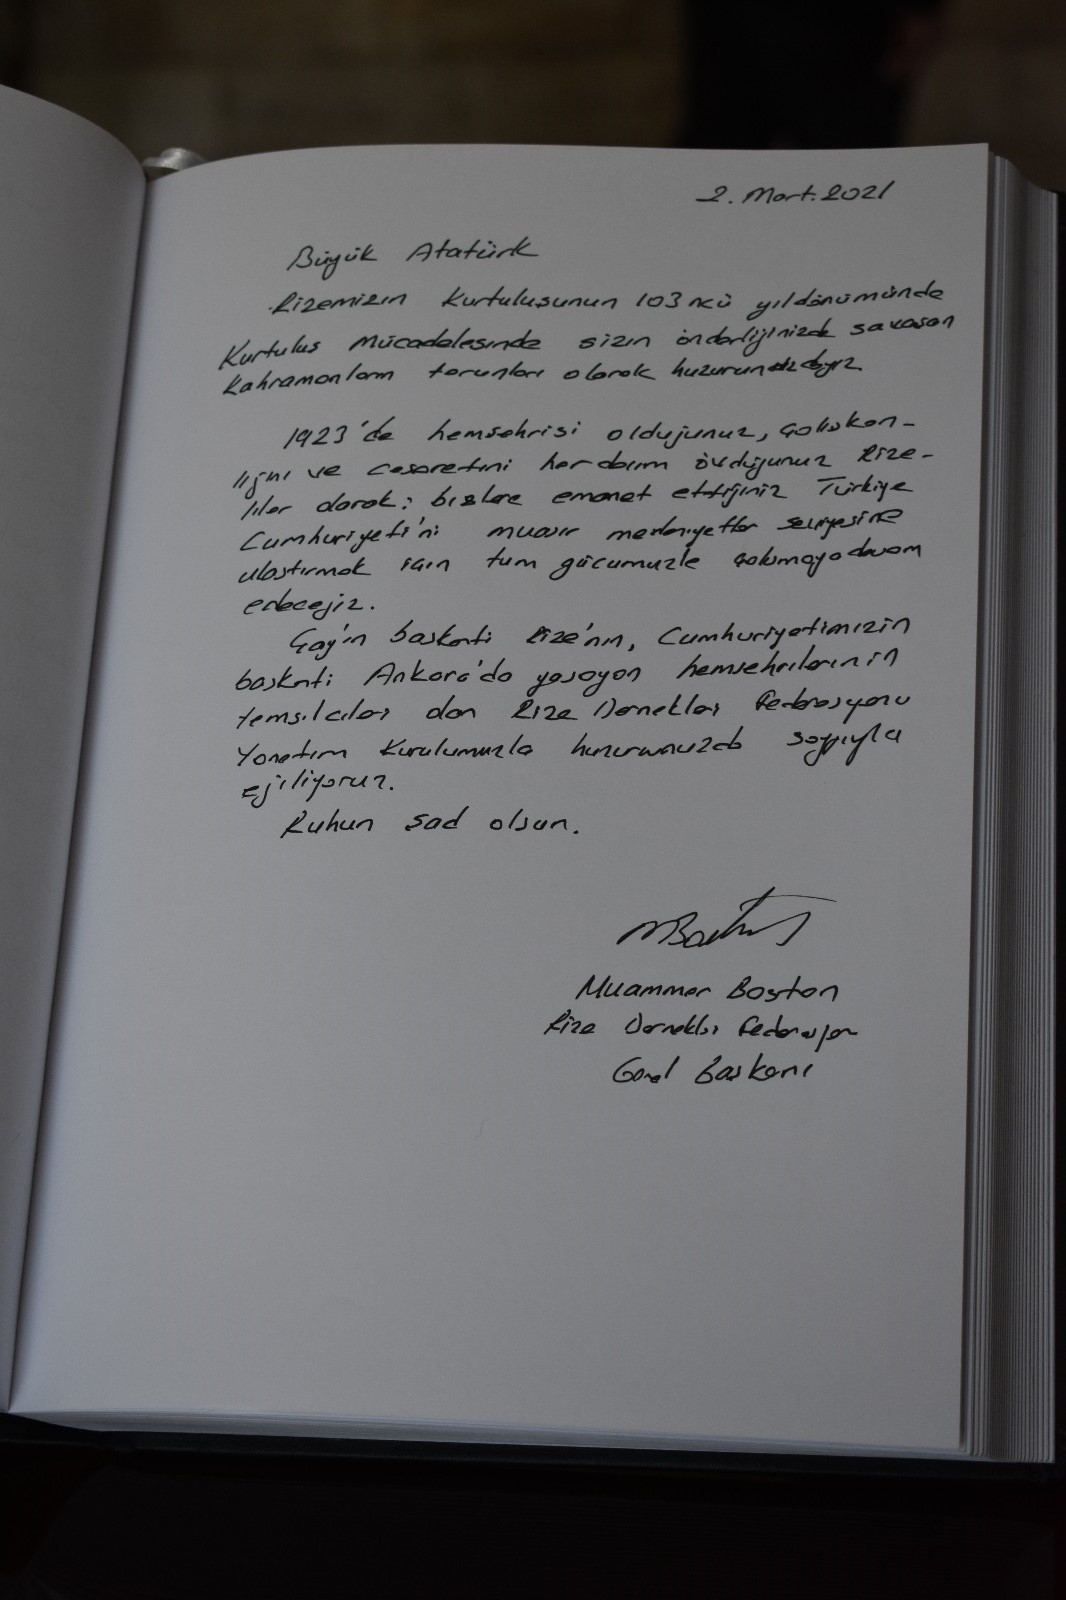 2. Mart. 2021
Büyük Atatürk
Rizemizin Kurtuluşunun 103 ncü yıldönümünde
Kurtuluş Mücadelesinde sizin önderliğinizde savaşan
Kahramanların torunları olarak huzurunuzdayız.
1923'de hemşehrisi olduğunuz, çalışkan-
lığını ve cesaretini her daim övdüğünüz Rize-
liler olarak; bizlere emanet ettiğiniz Türkiye
Cumhuriyeti'ni muasır medeniyetler seviyesine
ulaştırmak için tüm gücümüzle çalışmaya devam
edeceğiz.
Çay'ın başkenti Rize'nin, Cumhuriyetimizin
başkenti Ankara'da yaşayan hemşehrilerinin
temsilcileri olan Rize Dernekler Federasyonu
Yönetim Kurulumuzla huzurunuzda saygıyla
eğiliyoruz.
Ruhun şad olsun.
Muammer Bostan
Rize Dernekler Federasyon
Genel Başkanı